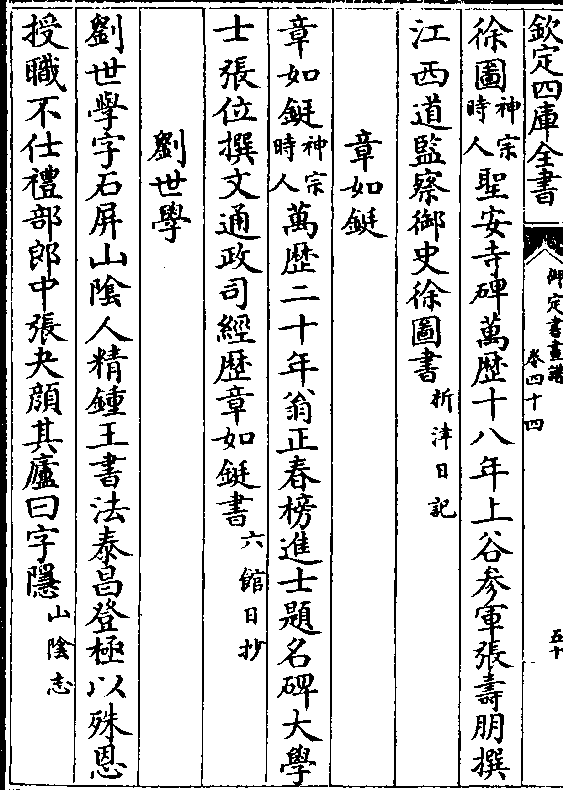 欽定四庫全書
御定書畫譜
卷四十四
五十
徐圖神宗時人聖安寺碑萬歴十八年上谷參軍張壽朋撰
江西道監察御史徐圖書析津日記
章如鋌
章如鋌神宗時人萬歴二十年翁正春榜進士題名碑大學
士張位撰文通政司經歴章如鋌書六館日抄
劉世學
劉世學字石屏山隂人精鍾王書法泰昌登極以殊恩
授職不仕禮部郎中張夬顔其廬曰字隱山隂志